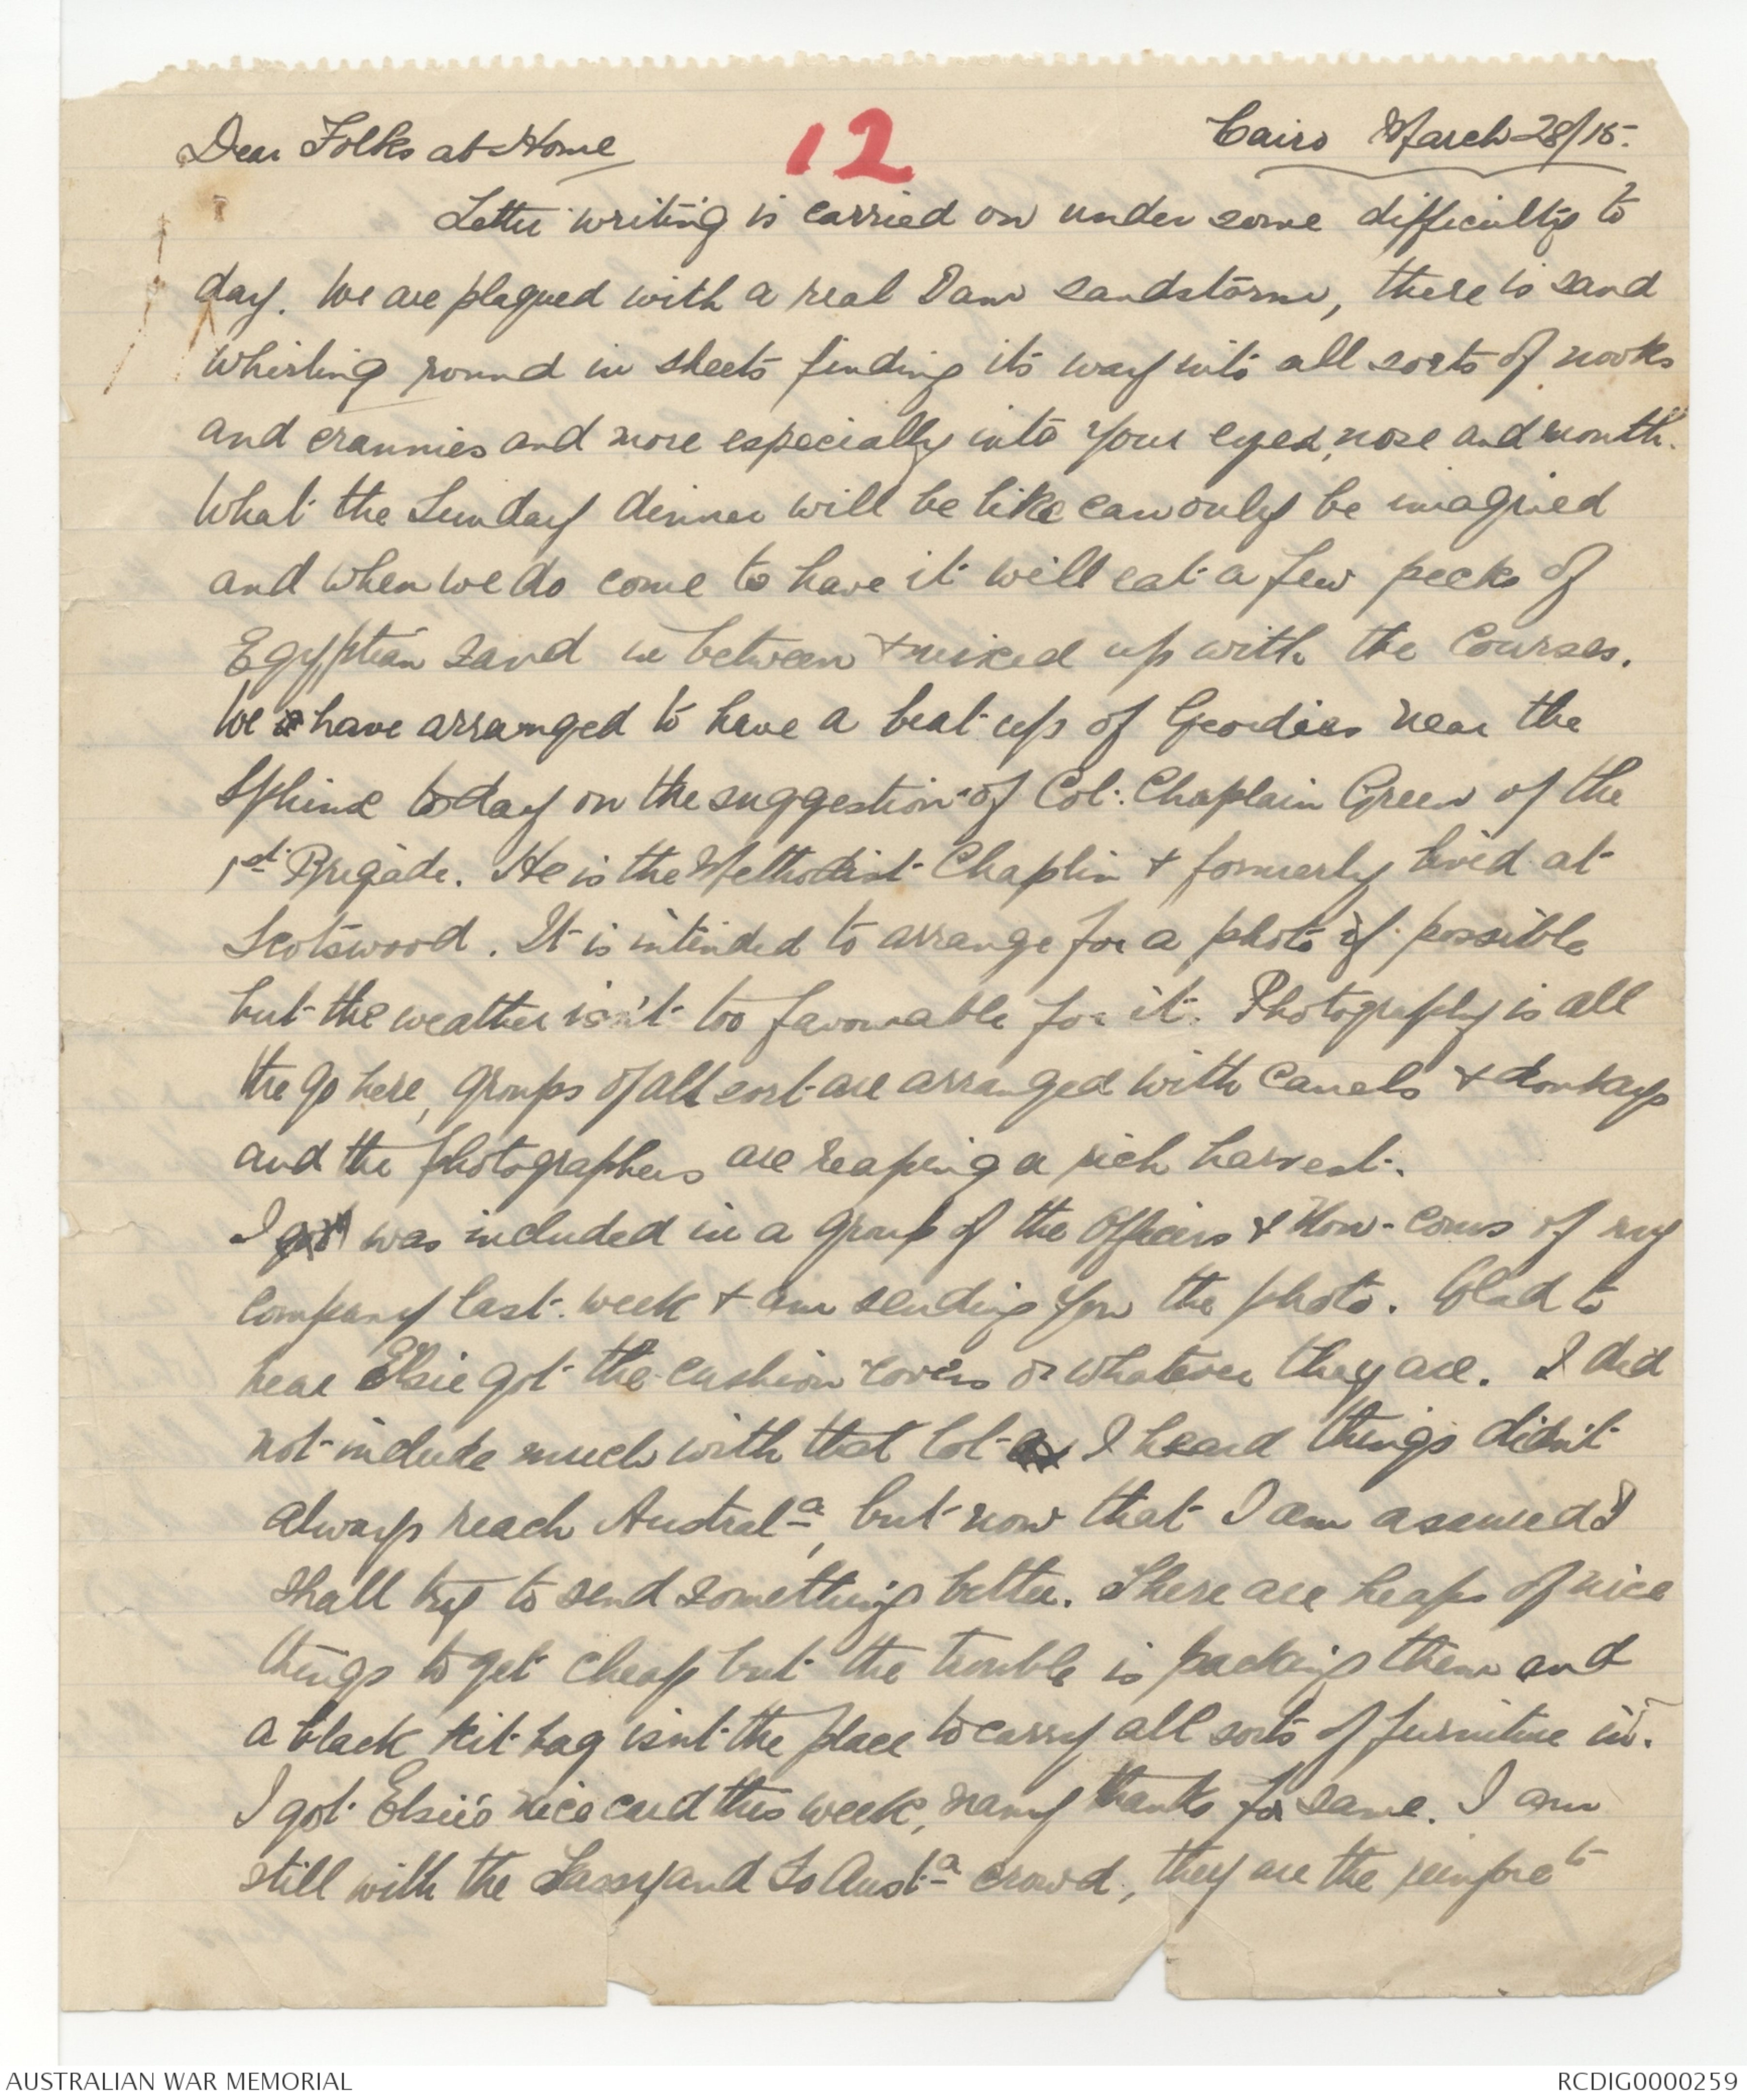 Dear Folks at Home
12
Cairo March 28/15.
Letter writing is carried on under some difficulty to
day. We are plagued with a real Dam sandstorm, there is sand
whirling round in sheets finding its way into all sorts of nooks
and crannies and more especially into your eyes, nose and mouth.
What the Sunday dinner will be like can only be imagined
and when we do come to have it will eat a few pecks of
Egyptian sand in between & mixed up with the courses.
We have arranged to have a beat up of Geordies near the
Sphinx today on the suggestion of Col: Chaplain Green of the
1st Brigade. He is the Methodist Chaplin & formerly lived at
Scotswood. It is intended to arrange for a photo if possible
but the weather isn't too favourable for it. Photography is all
the go here, groups of all sort are arranged with camels & donkays
and the photographers are reaping a rich harvest.
I got was included in a group of the Officers & Non-Coms of my
Company last week & am sending you the photo. Glad to
hear Elsie got the cushion covers or whatever they are. I did
not include much with that lot I heard things didn't
always reach Austral-a, but now that I am assured I
shall try to send something better. There are heaps of nice
things to get cheap but the trouble is packing them and
a black kit bag isnt the place to carry all sorts of furniture in.
I got Elsie's nice card this week, many thanks for same. I am
still with the Tassy and So Aust-a crowd, they are the reinforc ts
AUSTRALIAN WAR MEMORIAL
RCDIG0000259